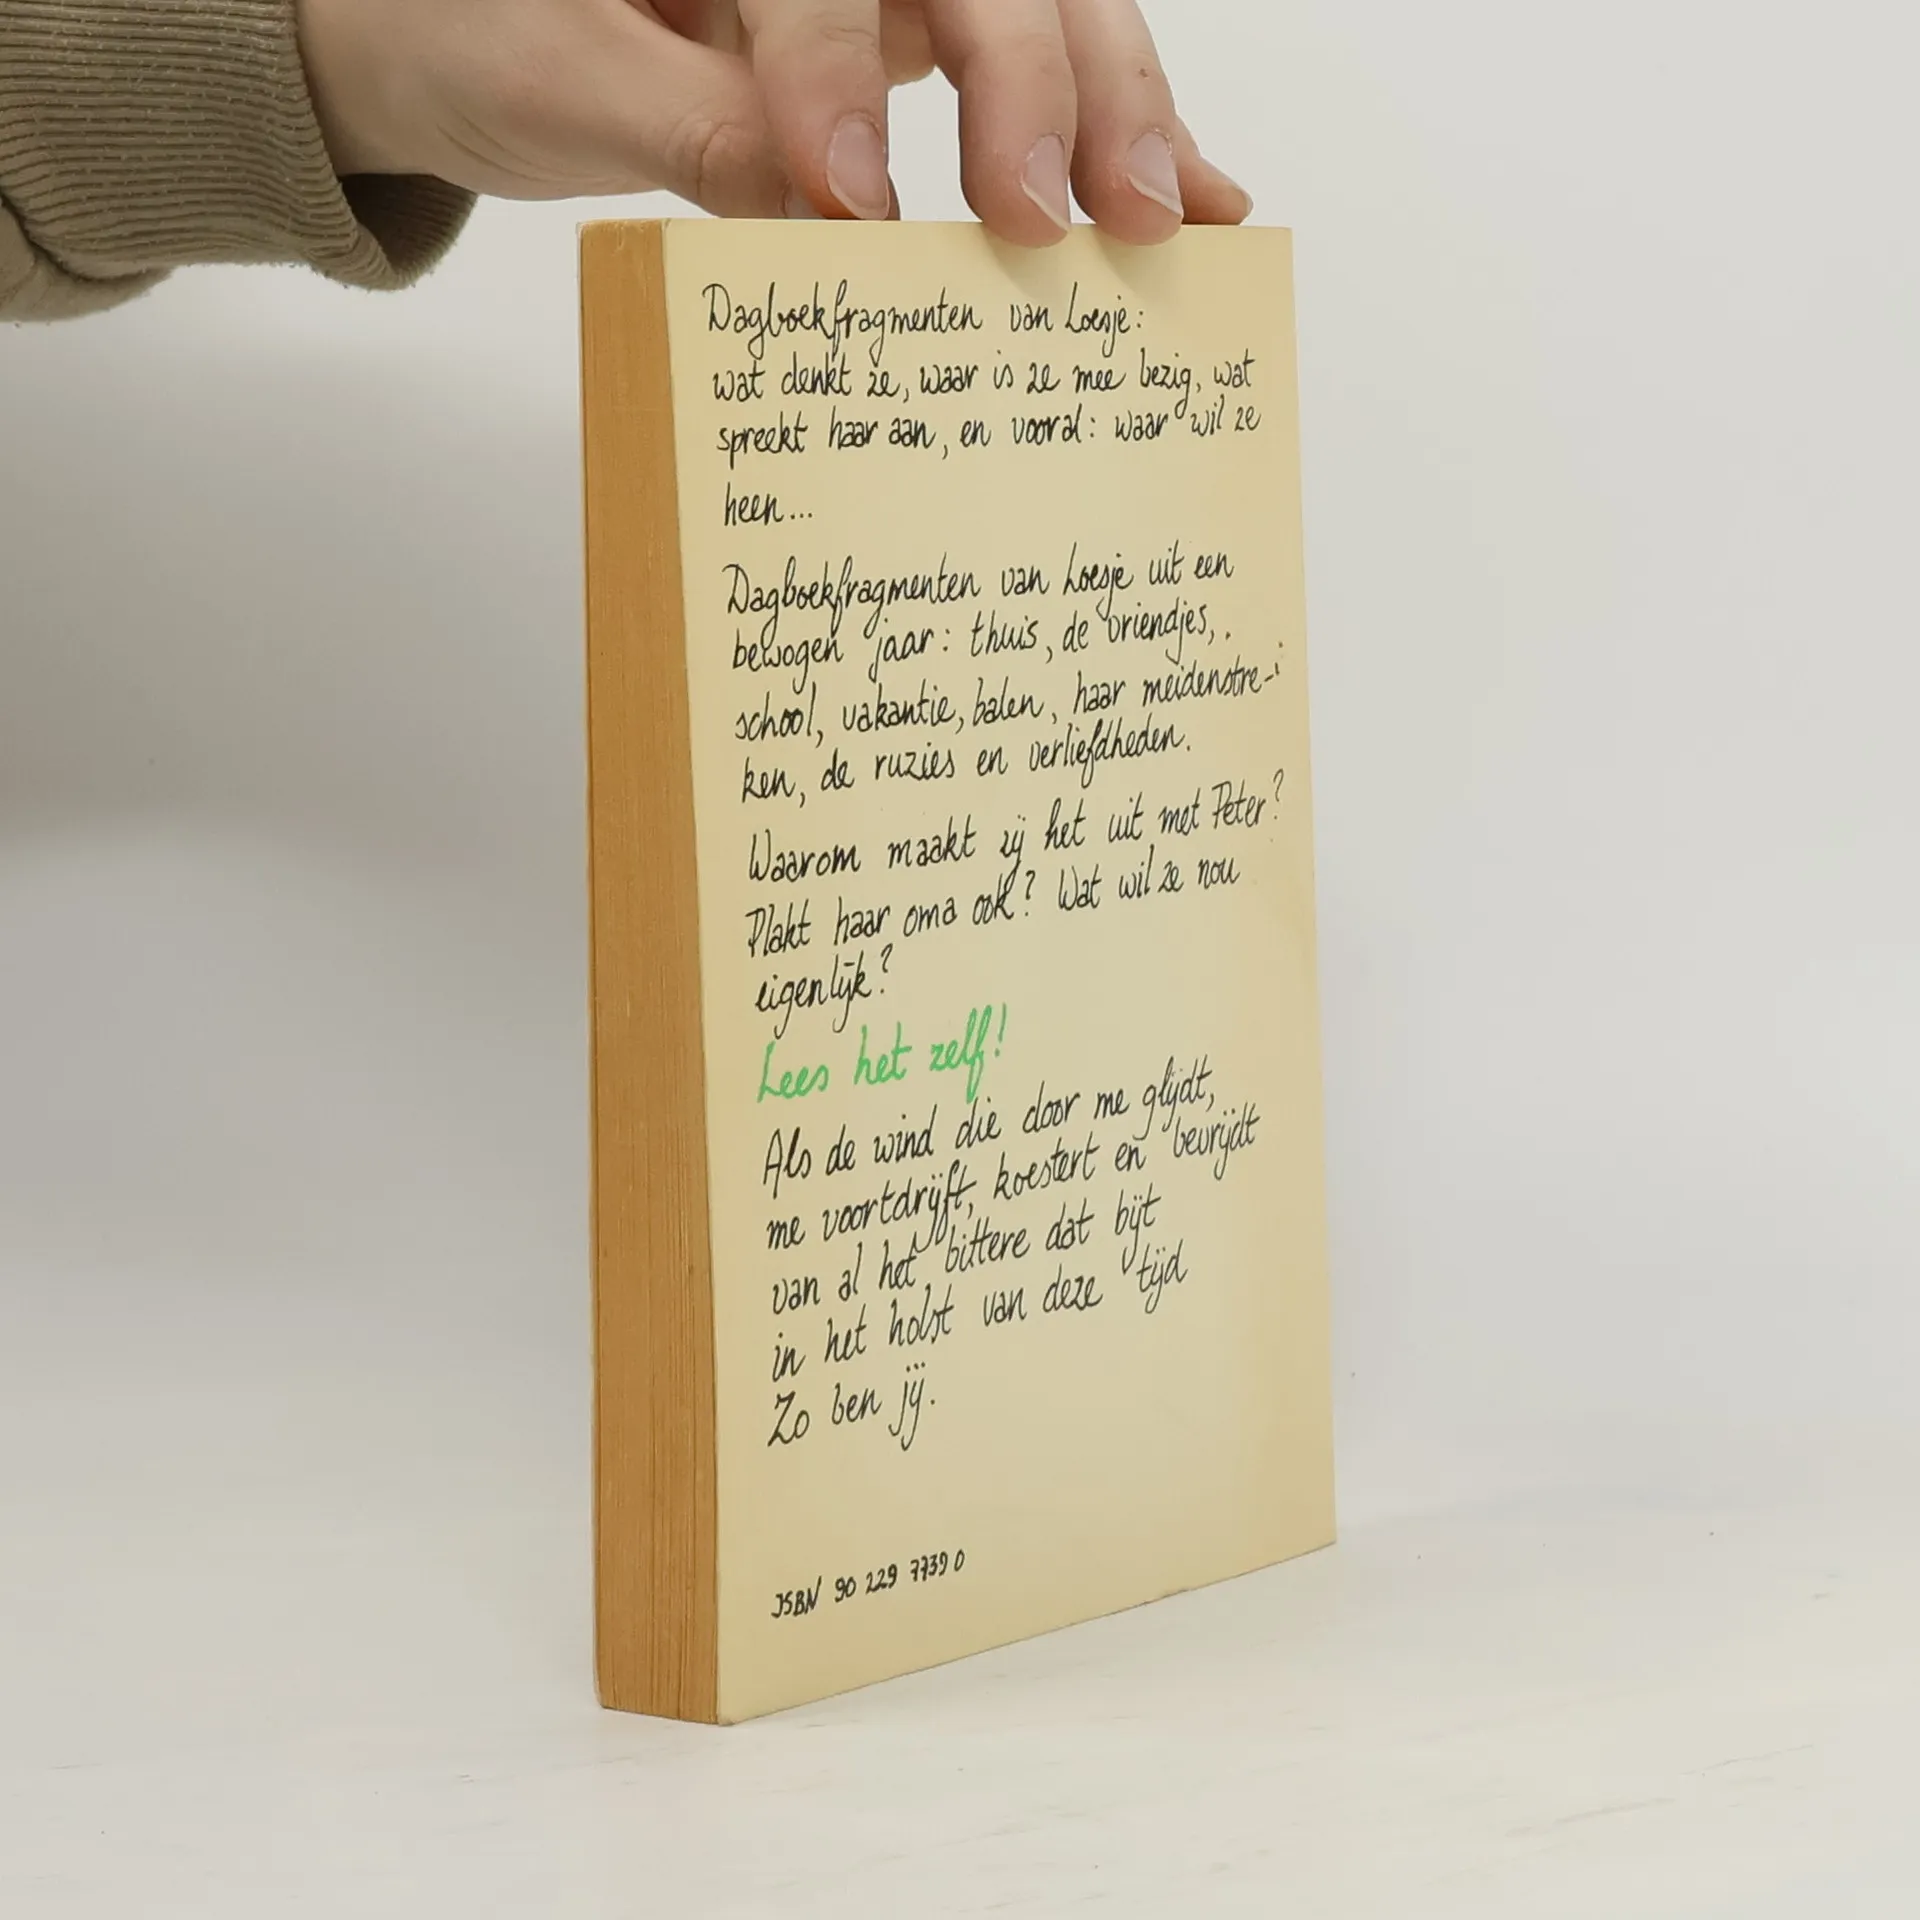 Dagboekfragmenten van Loesje:
wat denkt ze, waar is ze mee bezig, wat
spreekt haar aan, en vooral: waar wil ze
heen...
Dagboekfragmenten van Loesje uit een
bewogen jaar: thuis, de vriendjes,
school, vakantie, balen, haar meidenstre-
ken, de ruzies en verliefdheden.
Waarom maakt zij het uit met Peter?
Plakt haar oma ook? Wat wil ze nou
eigenlijk?
Lees het zelf!
Als de wind die door me glijdt,
me voortdrijft, koestert en bevrijdt
van al het bittere dat bijt
in het holst van deze tijd
Zo ben jij.
ISBN 90 229 7739 0